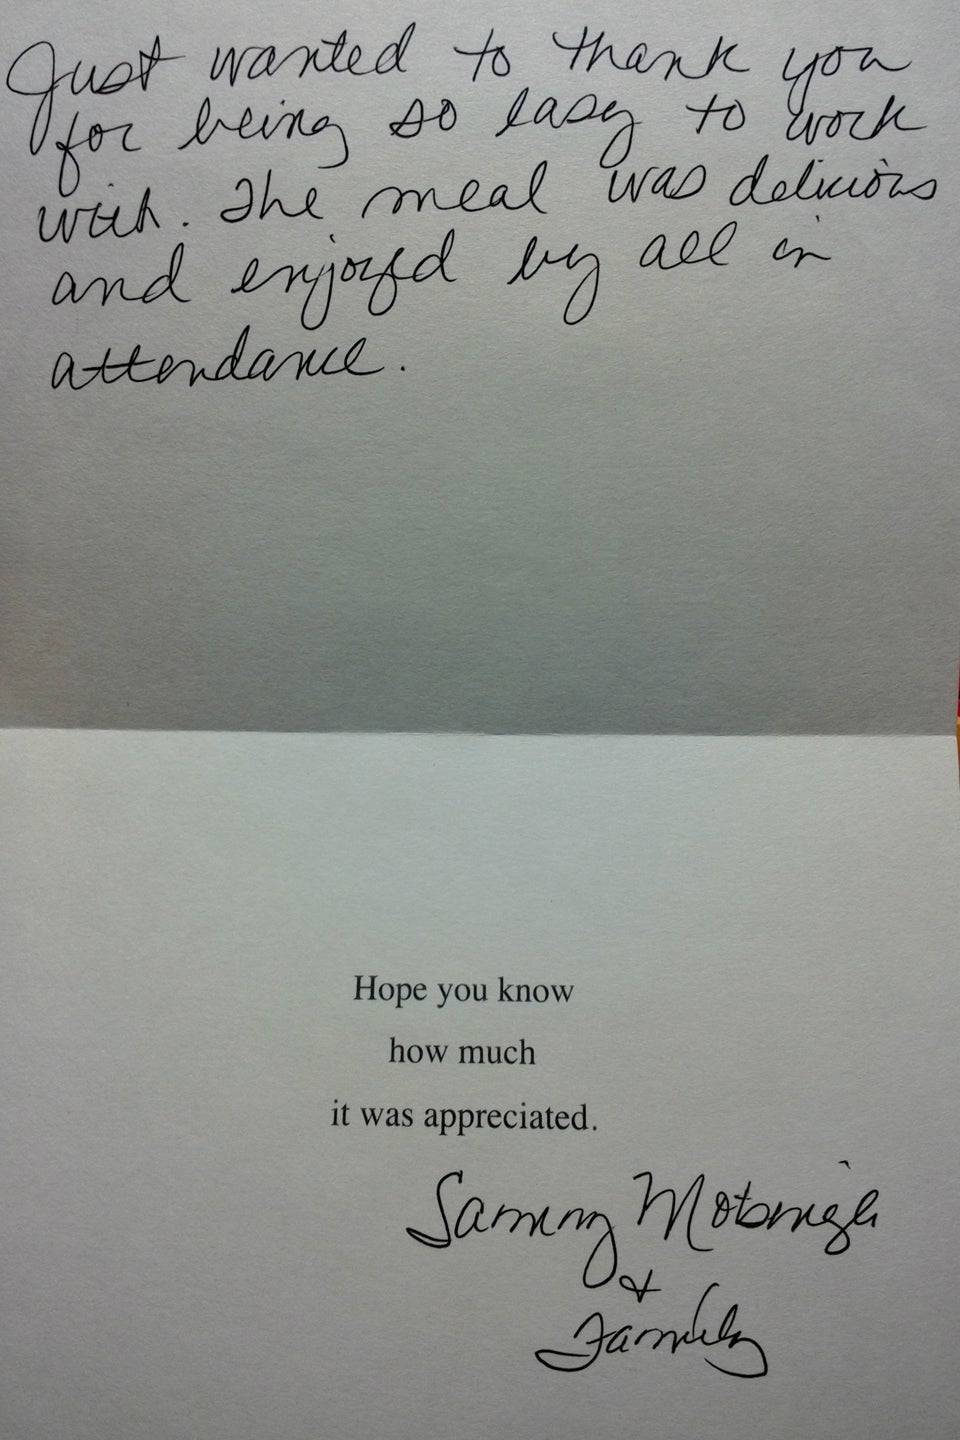 Just wanted to thank you
for being so easy to work
with. The meal was delicious
and enjoyed by all in
attendance.
Hope you know
how much
it was appreciated.
Sammy
&
Family